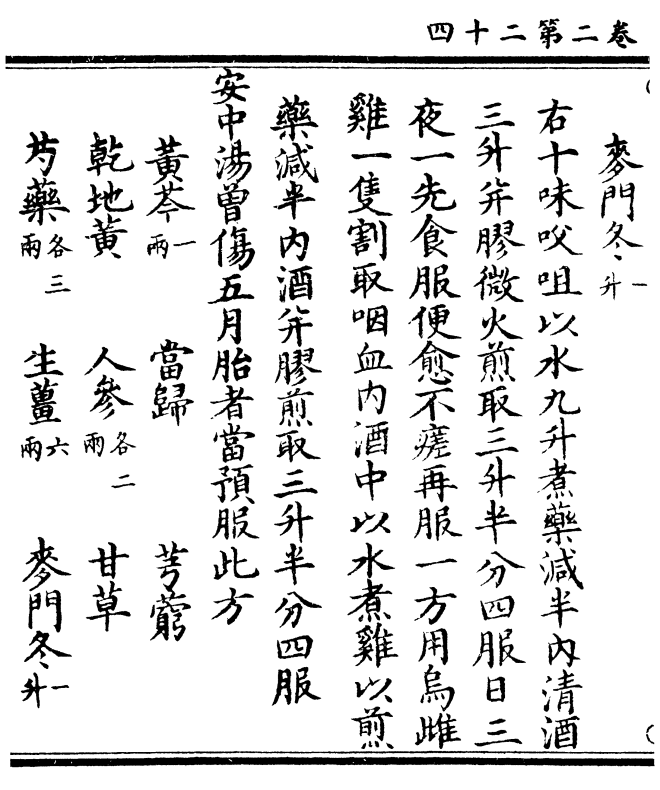 卷二第二十四
麥門冬一升
右十味㕮咀以水九升煮藥減半內清酒
三升并膠微火煎取三升半分四服日三
夜一先食服便愈不瘥再服一方用烏雌
雞一隻割取咽血內酒中以水煮雞以煎
藥減半內酒并膠煎取三升半分四服
安中湯曾傷五月胎者當預服此方
黃芩一兩 當歸 芎藭
乾地黃 人參各二兩 甘草
芍藥各三兩 生薑六兩 麥門冬一升